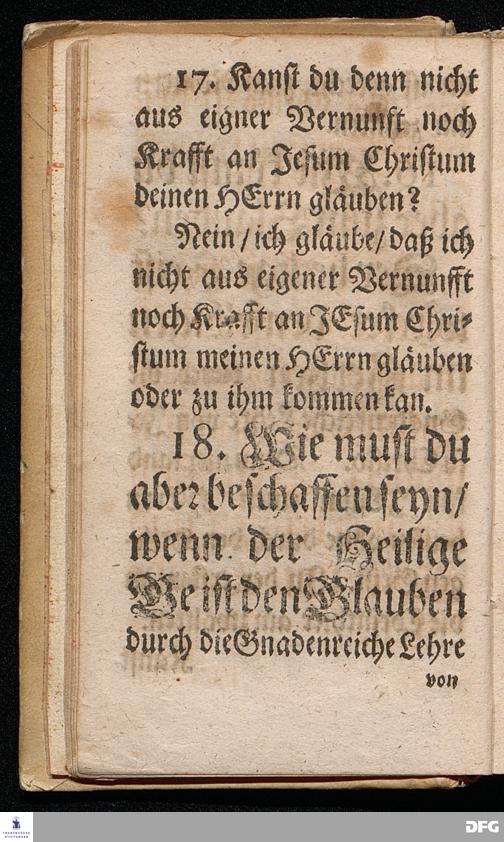 17. Kanst du denn nicht
aus eigner Vernunft noch
Krafft an Jesum Christum
deinen HErrn gläuben?
Nein / ich gläube / daß ich
nicht aus eigener Vernunfft
noch Krafft an JEsum Chri-
stum meinen HErrn gläuben
oder zu ihm kommen kan.
18. Wie must du
aber beschaffen seyn /
wenn der Heilige
Geist den Glauben
durch die Gnadenreiche Lehre
von
FRANCKESCHE STIFTUNGEN
DFG